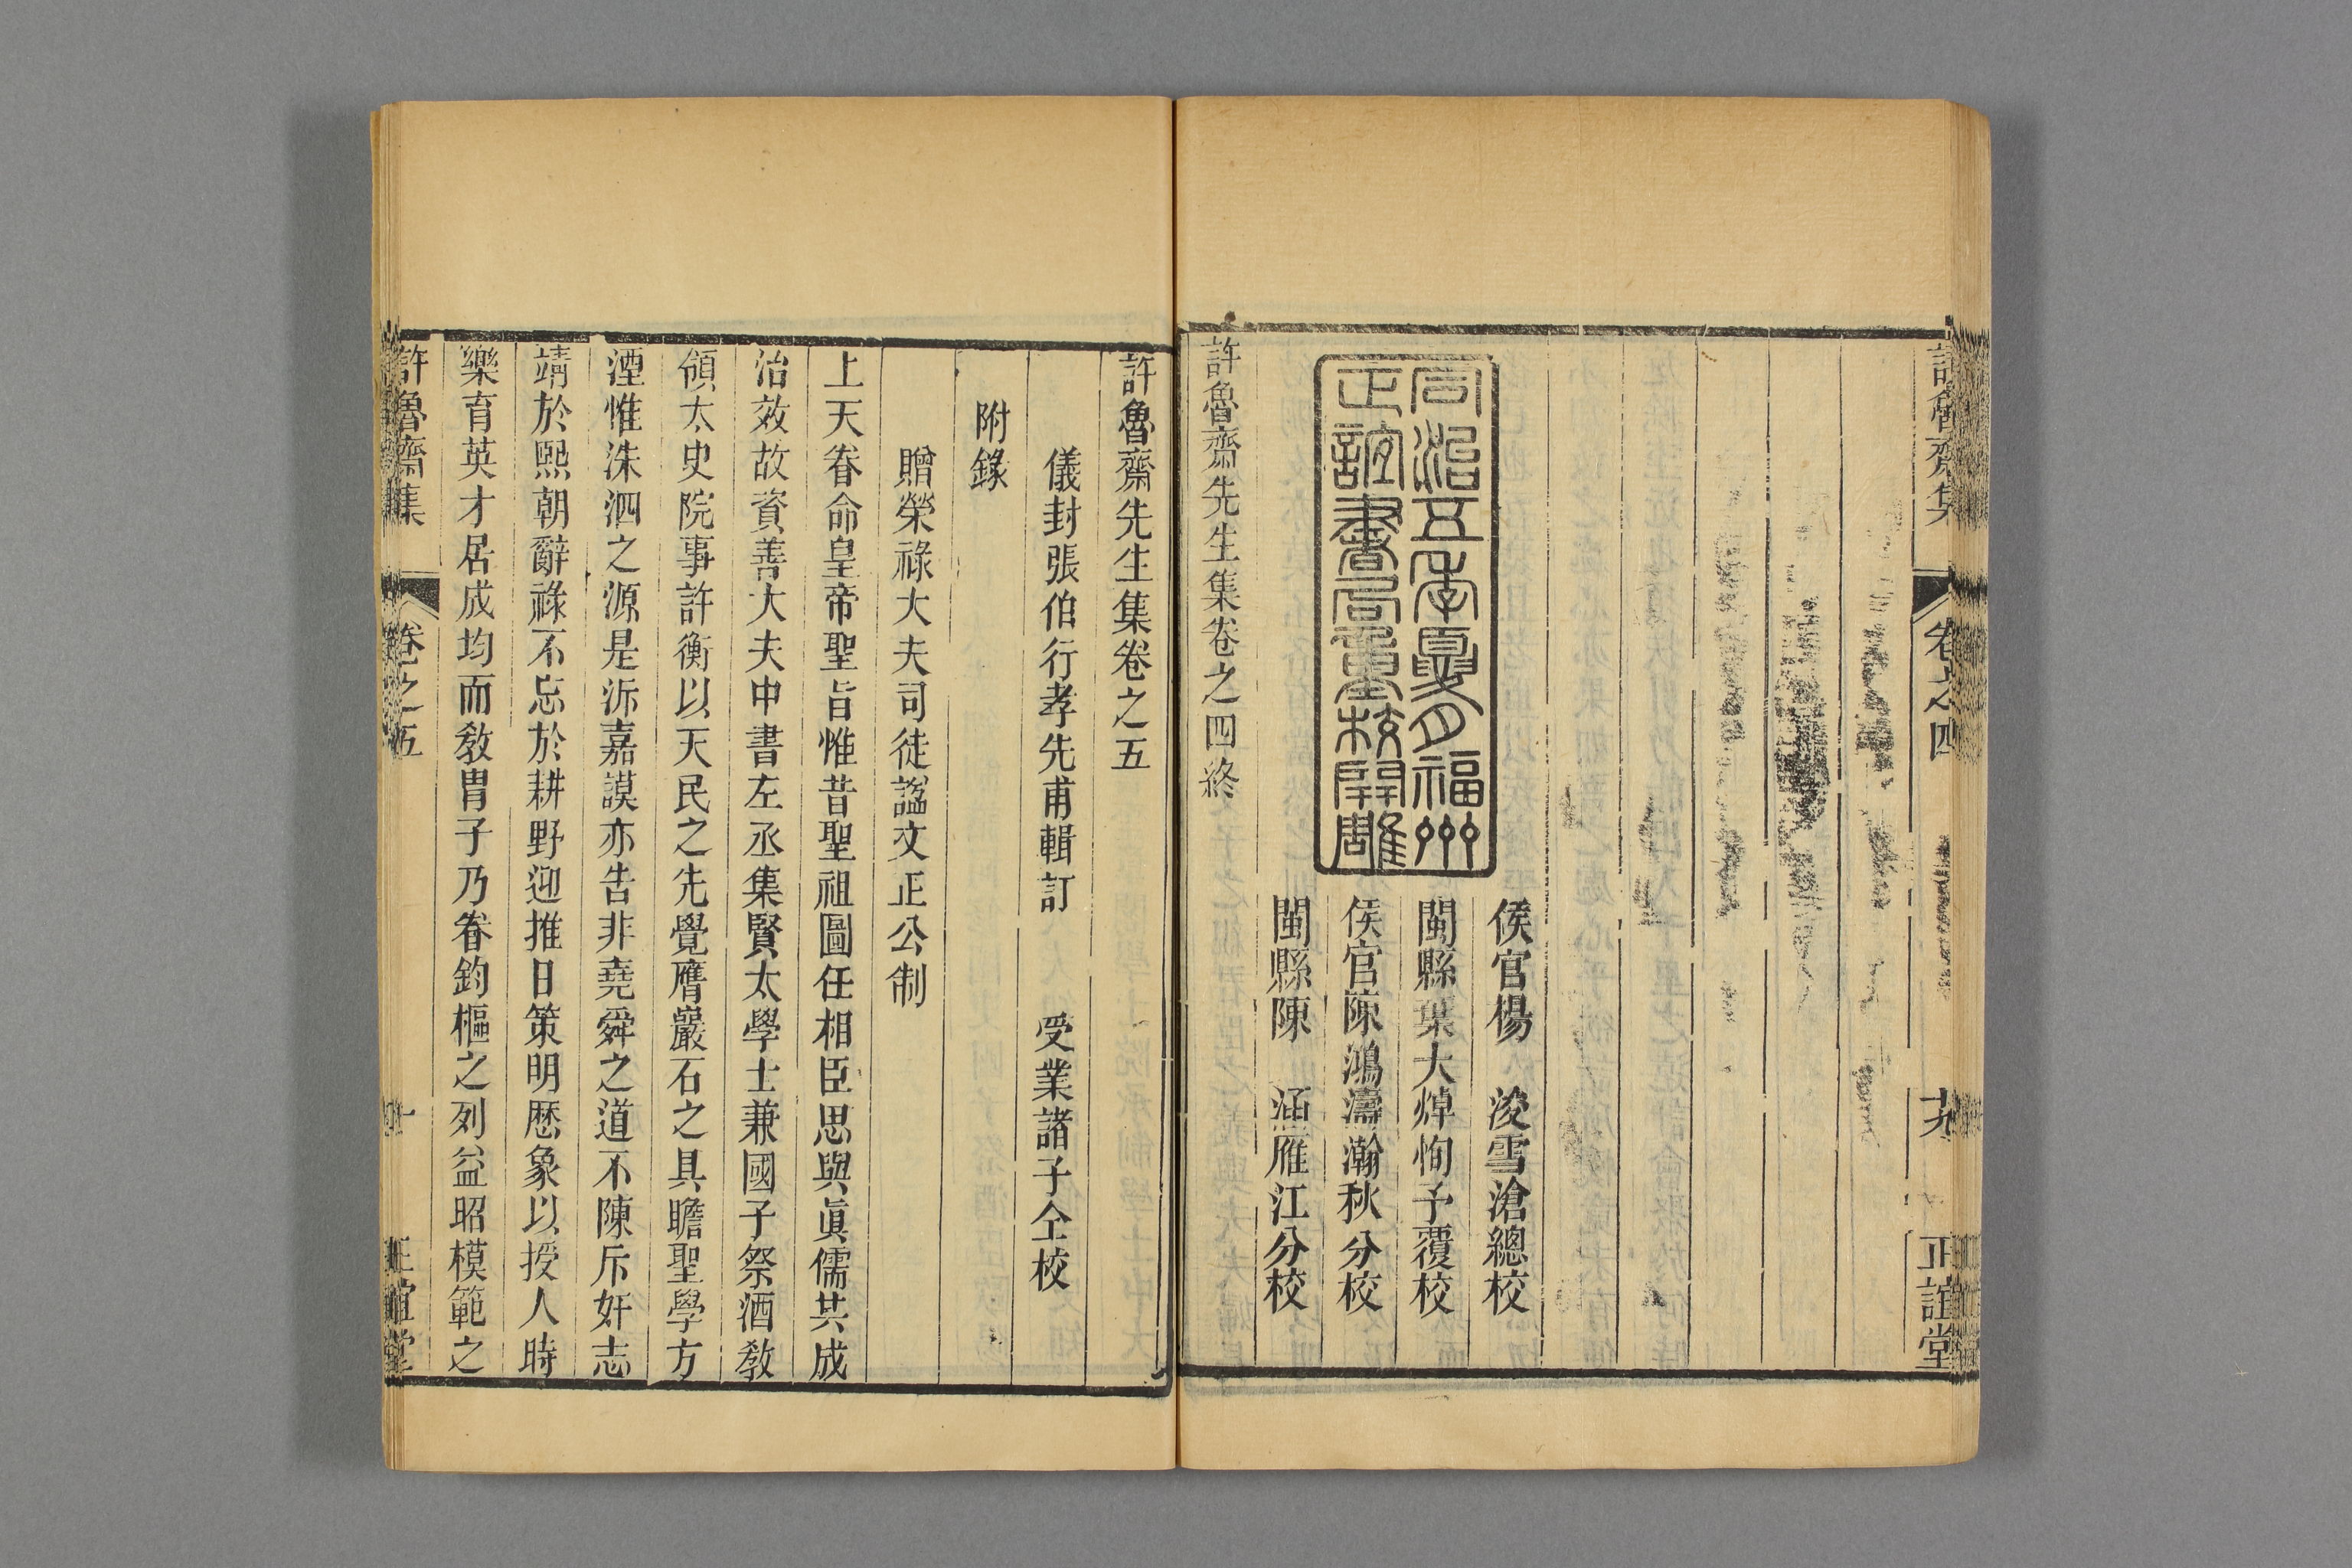 許魯齋集
卷之四
正誼堂
同治五年夏月福州
正誼書局重校開雕
侯官楊 浚雪滄總校
閩縣葉大焯恂予覆校
侯官陳鴻濤瀚秋分校
閩縣陳 涵雁江分校
許魯齋先生集卷之四終
許魯齋先生集卷之五
儀封張伯行孝先甫輯訂 受業諸子仝校
附錄
贈榮祿大夫司徒諡文正公制
上天眷命皇帝聖旨惟昔聖祖圖任相臣思與眞儒共成
治效故資善大夫中書左丞集賢太學士兼國子祭酒敎
領太史院事許衡以天民之先覺膺巖石之具瞻聖學方
湮惟洙泗之源是泝嘉謨亦告非堯舜之道不陳斥奸志
靖於熙朝辭祿不忘於耕野迎推日策明厯象以授人時
樂育英才居成均而敎胄子乃眷鈞樞之列益昭模範之
許魯齋集
卷之五
一
正誼堂